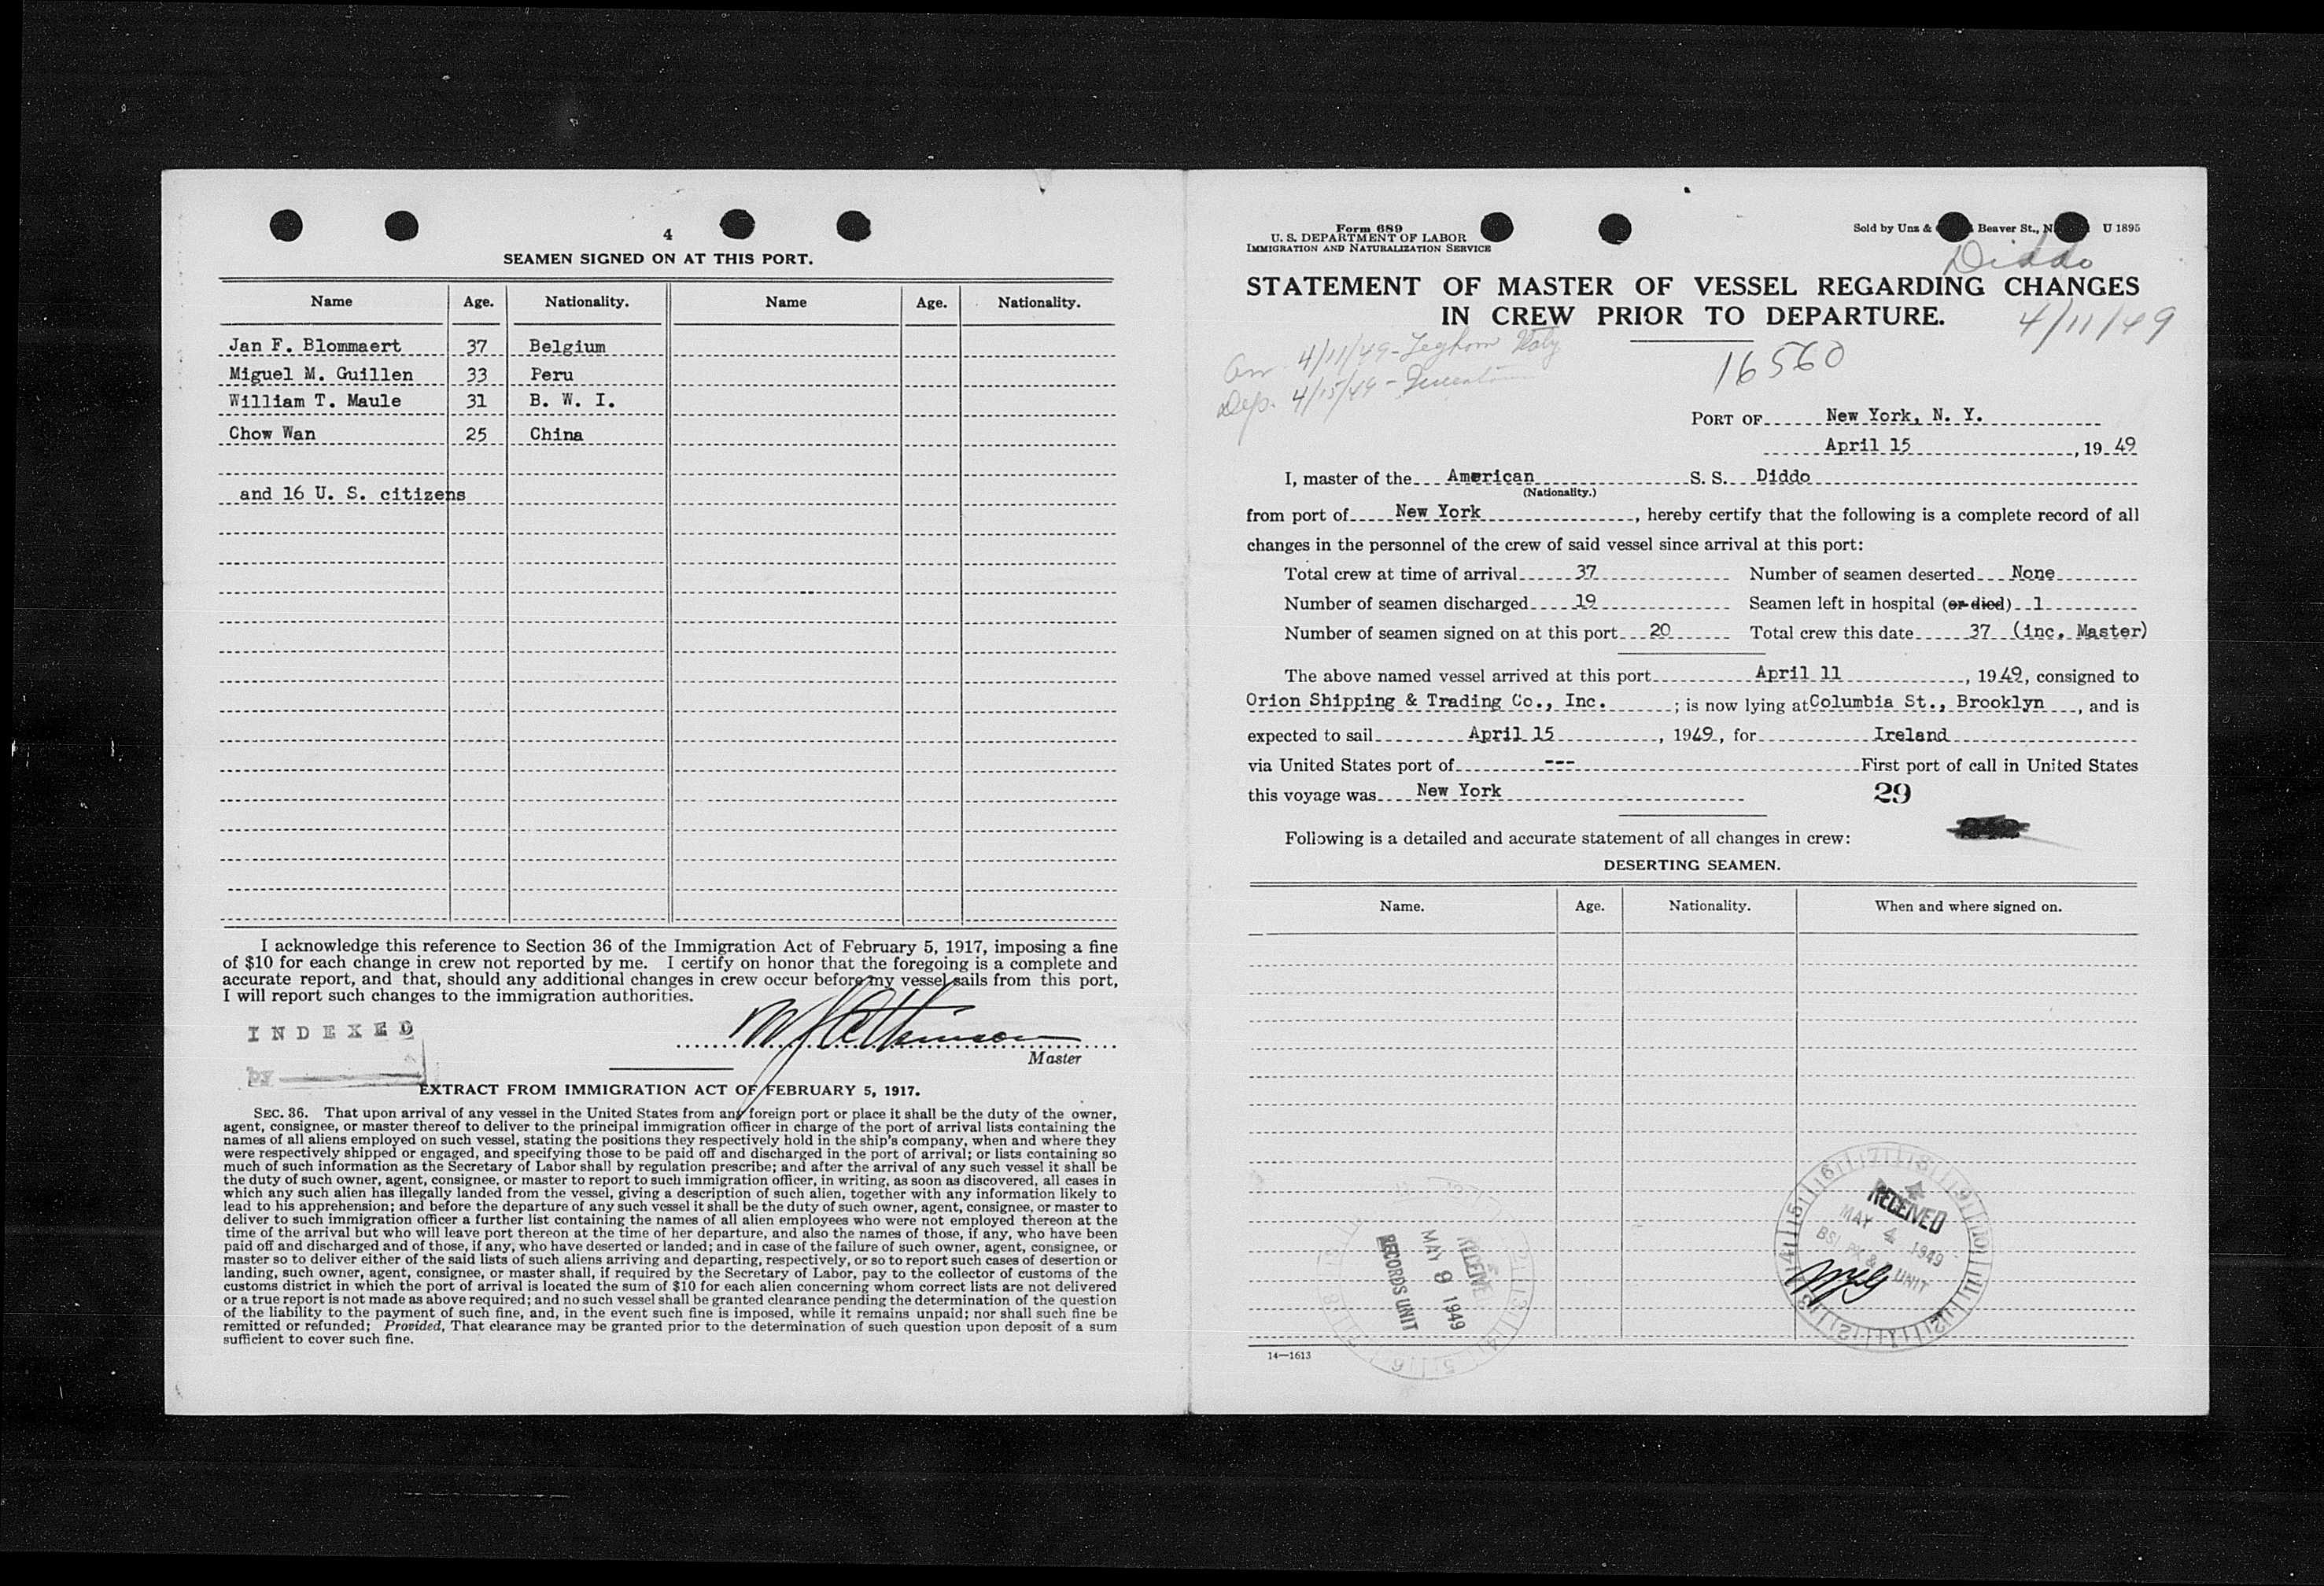 4
SEAMEN SIGNED ON AT THIS PORT.
Name Age. Nationality. Name Age. Nationality.
Jan F. Blommaert 37 Belgium
Miguel M. Guillen 33 Peru
William T. Maule 31 B. W. I.
Chow Wan 25 China
and 16 U. S. citizens
I acknowledge this reference to Section 36 of the Immigration Act of February 5, 1917, imposing a fine
of $10 for each change in crew not reported by me. I certify on honor that the foregoing is a complete and
accurate report, and that, should any additional changes in crew occur before my vessel sails from this port,
I will report such changes to the immigration authorities.
INDEXED
by
Master
EXTRACT FROM IMMIGRATION ACT OF FEBRUARY 5, 1917.
SEC. 36. That upon arrival of any vessel in the United States from any foreign port or place it shall be the duty of the owner,
agent, consignee, or master thereof to deliver to the principal immigration officer in charge of the port of arrival lists containing the
names of all aliens employed on such vessel, stating the positions they respectively hold in the ship's company, when and where they
were respectively shipped or engaged, and specifying those to be paid off and discharged in the port of arrival; or lists containing so
much of such information as the Secretary of Labor shall by regulation prescribe; and after the arrival of any such vessel it shall be
the duty of such owner, agent, consignee, or master to report to such immigration officer, in writing, as soon as discovered, all cases in
which any such alien has illegally landed from the vessel, giving a description of such alien, together with any information likely to
lead to his apprehension; and before the departure of any such vessel it shall be the duty of such owner, agent, consignee, or master to
deliver to such immigration officer a further list containing the names of all alien employees who were not employed thereon at the
time of the arrival but who will leave port thereon at the time of her departure, and also the names of those, if any, who have been
paid off and discharged and of those, if any, who have deserted or landed; and in case of the failure of such owner, agent, consignee, or
master so to deliver either of the said lists of such aliens arriving and departing, respectively, or so to report such cases of desertion or
landing, such owner, agent, consignee, or master shall, if required by the Secretary of Labor, pay to the collector of customs of the
customs district in which the port of arrival is located the sum of $10 for each alien concerning whom correct lists are not delivered
or a true report is not made as above required; and no such vessel shall be granted clearance pending the determination of the question
of the liability to the payment of such fine, and, in the event such fine is imposed, while it remains unpaid; nor shall such fine be
remitted or refunded; Provided, That clearance may be granted prior to the determination of such question upon deposit of a sum
sufficient to cover such fine.
Form 689
U. S. DEPARTMENT OF LABOR
IMMIGRATION AND NATURALIZATION SERVICE
Sold by Unz & Beaver St., N U 1895
Diddo
STATEMENT OF MASTER OF VESSEL REGARDING CHANGES
IN CREW PRIOR TO DEPARTURE.
4/11/49
Arr. 4/11/49 - Leghorn Italy
Dep. 4/15/49 -
16560
PORT OF New York, N. Y.
April 15, 1949
I, master of the American S. S. Diddo
(Nationality.)
from port of New York, hereby certify that the following is a complete record of all
changes in the personnel of the crew of said vessel since arrival at this port:
Total crew at time of arrival 37 Number of seamen deserted None
Number of seamen discharged 19 Seamen left in hospital (or died) 1
Number of seamen signed on at this port 20 Total crew this date 37 (inc. Master)
The above named vessel arrived at this port April 11, 1949, consigned to
Orion Shipping & Trading Co., Inc. ; is now lying at Columbia St., Brooklyn, and is
expected to sail April 15, 1949, for Ireland
via United States port of --- First port of call in United States
this voyage was New York
29
Following is a detailed and accurate statement of all changes in crew:
DESERTING SEAMEN.
Name. Age. Nationality. When and where signed on.
RECEIVED
MAY 4 1949
BSI PX & UNIT
RECEIVED
MAY 9 1949
RECORDS UNIT
14—1613